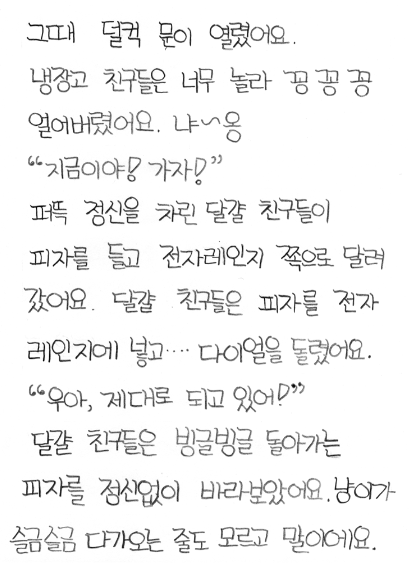 그때 덜컥 문이 열렸어요.
냉장고 친구들은 너무 놀라 꽁 꽁 꽁
얼어버렸어요. 냐~옹
“지금이야! 가자!”
퍼뜩 정신을 차린 달걀 친구들이
피자를 들고 전자레인지 쪽으로 달려
갔어요. 달걀 친구들은 피자를 전자
레인지에 넣고···· 다이얼을 돌렸어요.
“우아, 제대로 되고 있어!”
달걀 친구들은 빙글빙글 돌아가는
피자를 정신없이 바라보았어요. 냥이가
슬금슬금 다가오는 줄도 모르고 말이에요.